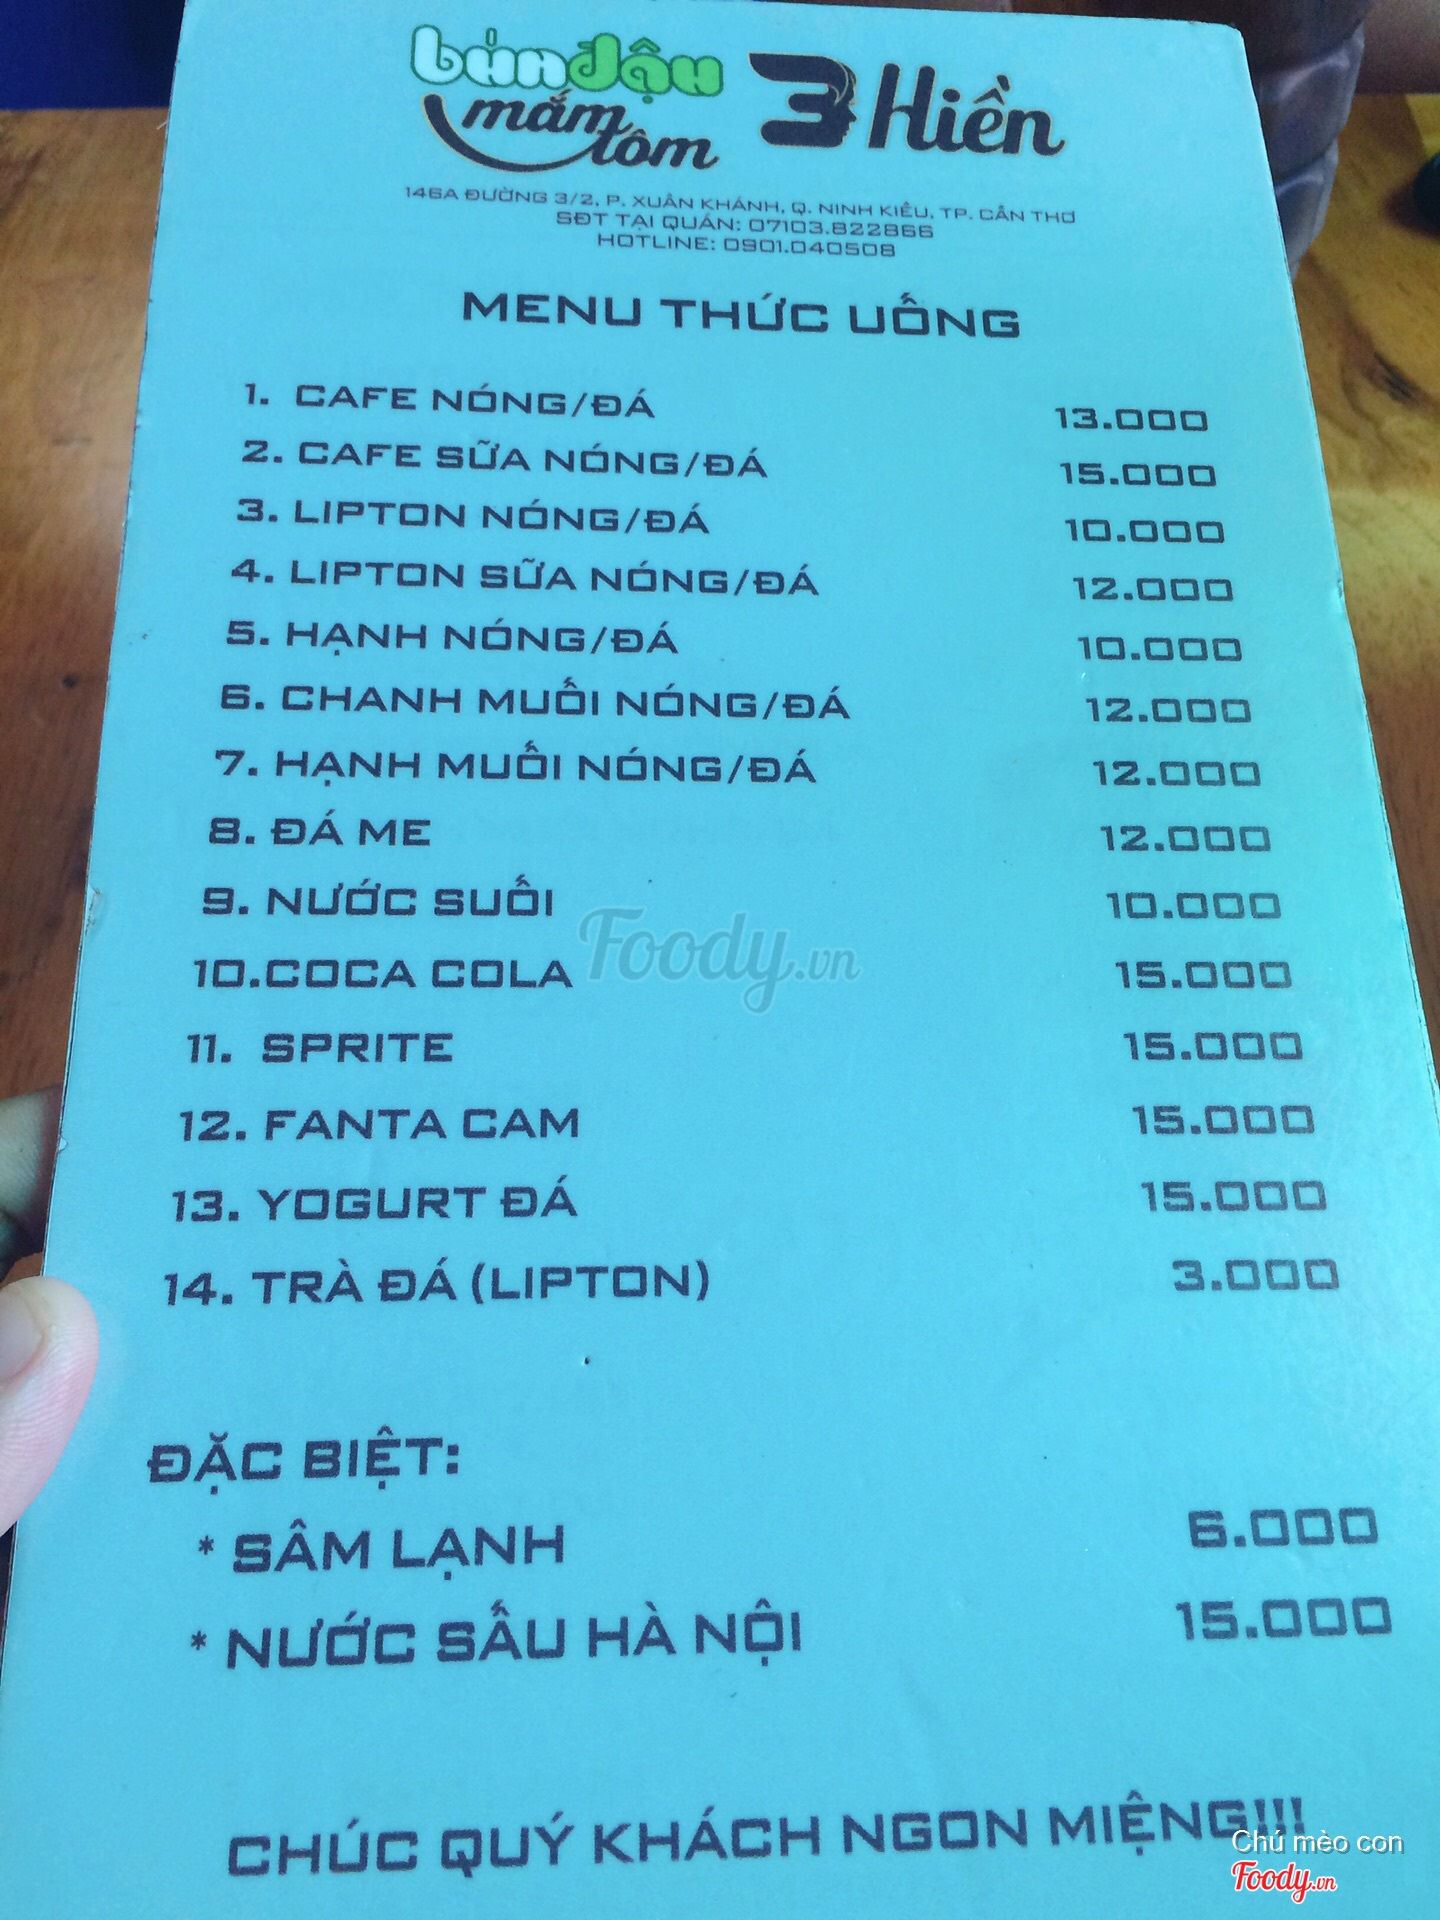 bún đậu
mắm tôm
3 Hiền
146A ĐƯỜNG 3/2, P. XUÂN KHÁNH, Q. NINH KIỀU, TP. CẦN THƠ
SĐT TẠI QUÁN: 07103.822866
HOTLINE: 0901.040508
MENU THỨC UỐNG
1. CAFE NÓNG/ĐÁ 13.000
2. CAFE SỮA NÓNG/ĐÁ 15.000
3. LIPTON NÓNG/ĐÁ 10.000
4. LIPTON SỮA NÓNG/ĐÁ 12.000
5. HẠNH NÓNG/ĐÁ 10.000
6. CHANH MUỐI NÓNG/ĐÁ 12.000
7. HẠNH MUỐI NÓNG/ĐÁ 12.000
8. ĐÁ ME 12.000
9. NƯỚC SUỐI 10.000
10.COCA COLA 15.000
11. SPRITE 15.000
12. FANTA CAM 15.000
13. YOGURT ĐÁ 15.000
14. TRÀ ĐÁ (LIPTON) 3.000
Foody.vn
ĐẶC BIỆT:
* SÂM LẠNH 6.000
* NƯỚC SẤU HÀ NỘI 15.000
CHÚC QUÝ KHÁCH NGON MIỆNG!!!
Chú mèo con
Foody.vn